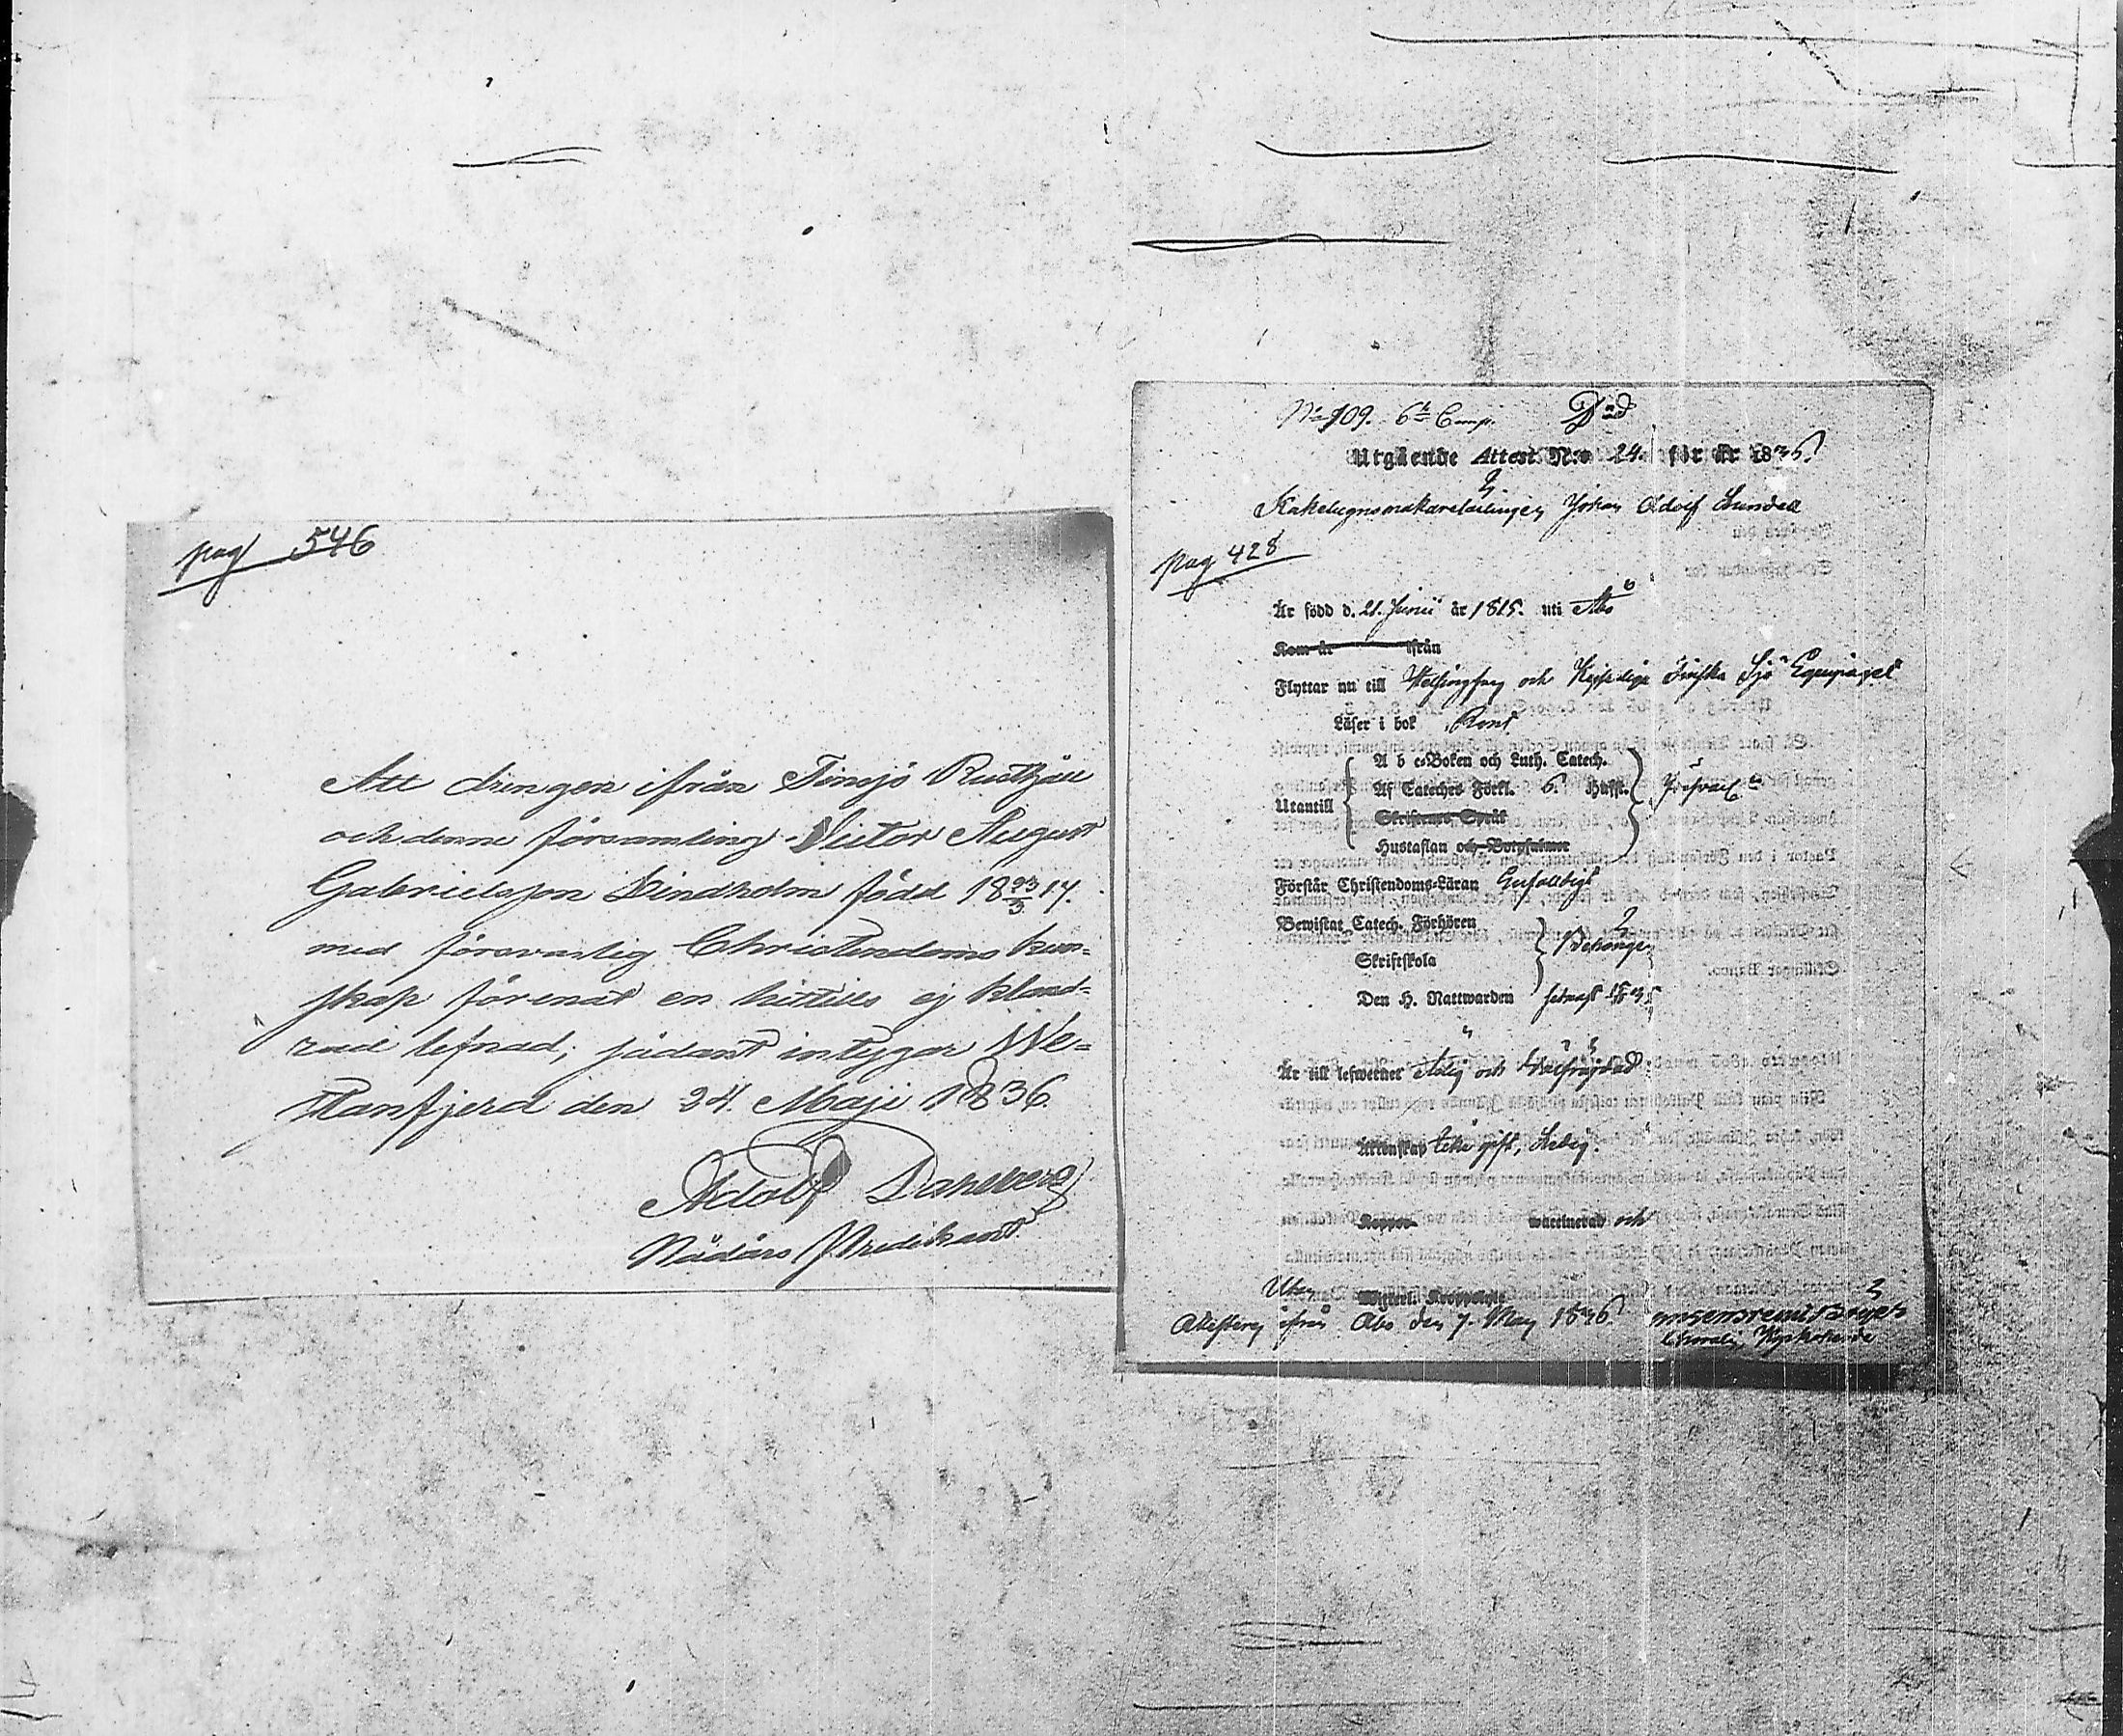 pag 546
Att drengen ifrån Tinsjö Rusthåll
och denne församling Victor August
Gabrielsson Lindholm född 18 23/3 14.
med försvarlig Christendoms kun-
skap förenat en hittills ej kland-
rad lefnad; sådant intygar We-
stanfjerd den 24. Maji 1836.
Adolf Dahlberg
Nådårs Predikant.
No 109. 6te Comp. Död
Utgående Attest N:o 24. för år 1836.
Kakelugnsmakarelärlingen Johan Adolf Lundell
pag 428
Är född d. 21. Junii år 1815. uti Åbo
Kom år ifrån
Flyttar nu till Helsingfors och Kejserliga Finska Sjö Equipaget
Läser i bok Rent
A b c-Boken och Luth. Catech.
Utantill Af Cateches Förkl. 6 Hufst. Försvarl.
Skriftenes Språk
Hustaflan och Botpsalmer
Förstår Christendoms-Läran Enfaldigt
Bewistat Catech. Förhören
Skriftskola Behörigen
Den H. Nattwarden sednast
Är till lefwernet ärlig och wälfrägdad
Äktenskap Icke gift, Ledig.
Koppor waccinerad och
Utan Wijterl. Kroppslyte
ifrån Åbo den 7. May 1836.